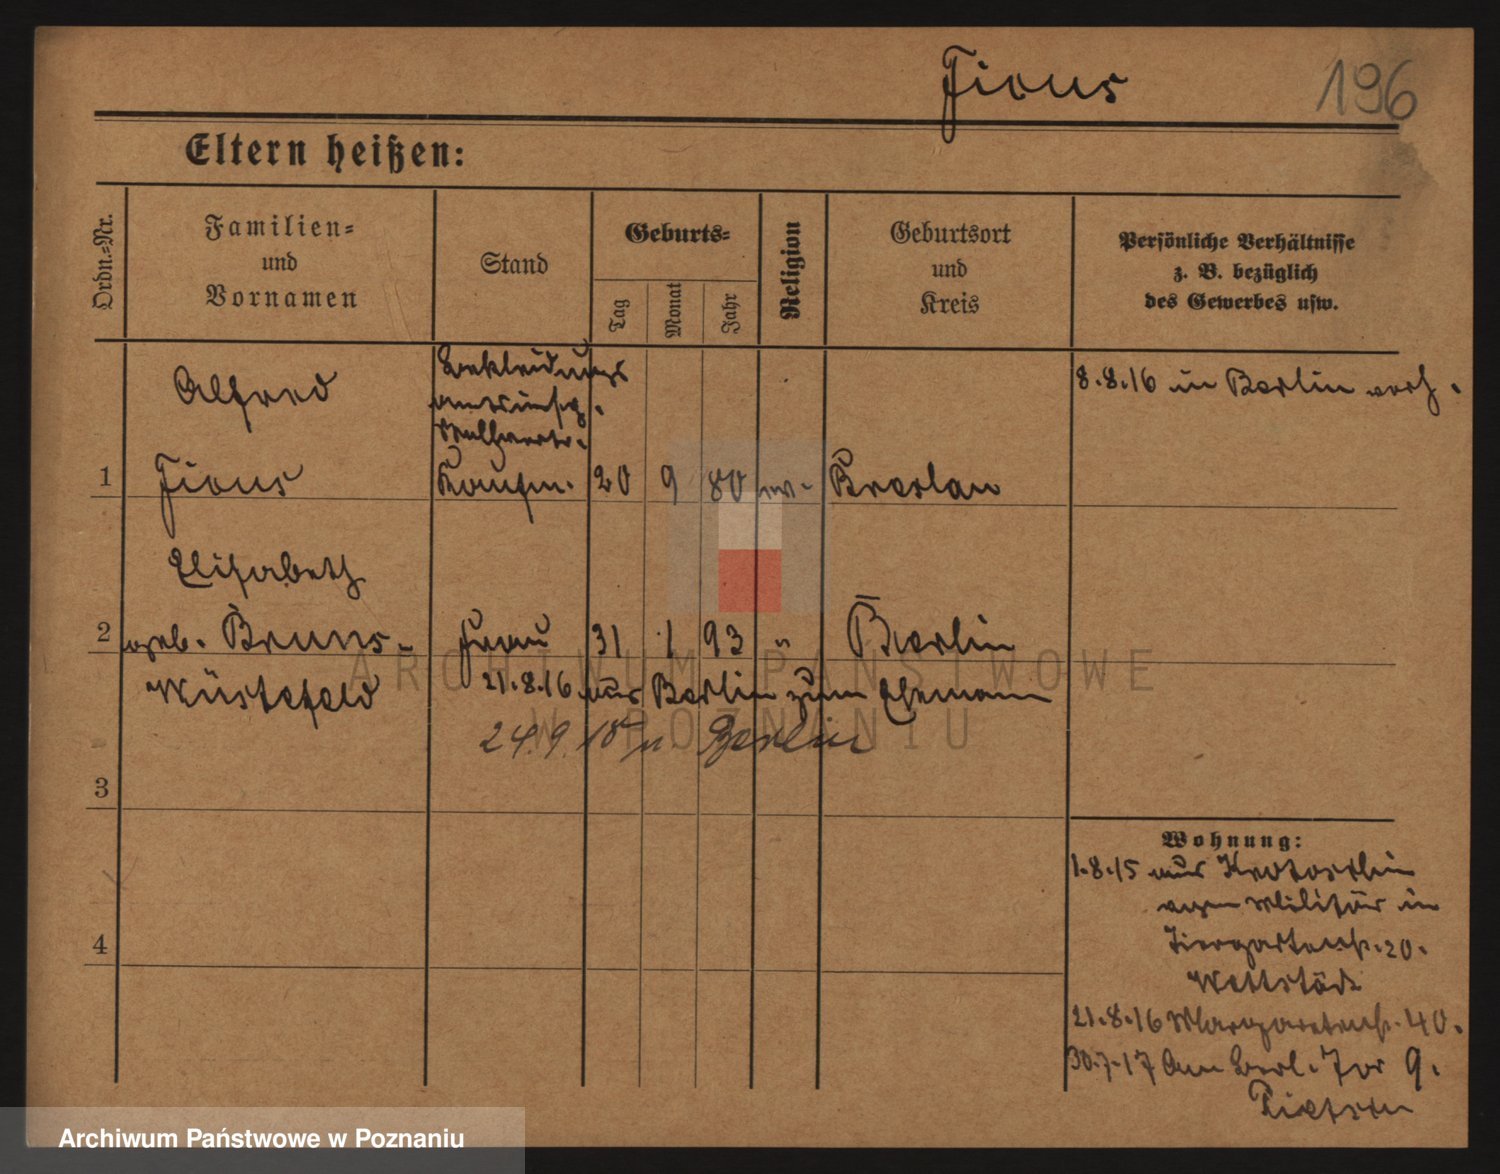 Fions
196
Eltern heißen:
Ordn.-Nr.
Familien-
und
Vornamen
Stand
Geburts-
Tag
Monat
Jahr
Religion
Geburtsort
und
Kreis
Persönliche Verhältnisse
z. B. bezüglich
des Gewerbes usw.
Alfred
Bekleidungs
8.8.16 in Berlin verh.
1
Fions
Kaufm.
20
9
80
ev.
Breslau
Elisabeth
2
geb. Bruns-
Frau
31
1
93
"
Berlin
Wüstefeld
21.8.16 aus Berlin zum Ehemann
24.9.18 n. Berlin
3
Wohnung:
1.8.15 aus Krotoschin
vom Militär in
Tiergartenstr. 20.
4
21.8.16 Margaretenstr. 40.
30.7.17 Am Berl. Tor 9.
ARCHIWUM PAŃSTWOWE
W POZNANIU
Archiwum Państwowe w Poznaniu